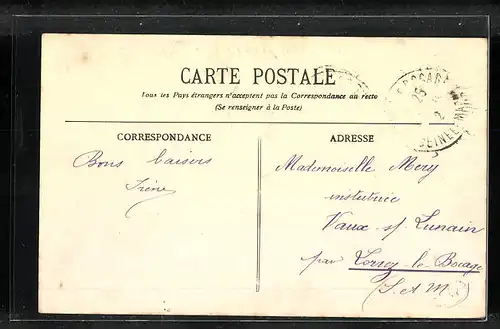 CARTE POSTALE
Tous les Pays étrangers n'acceptent pas la Correspondance au recto
(Se renseigner à la Poste)
CORRESPONDANCE
Bons baisers
Irène
ADRESSE
Mademoiselle Mery
institutrice
Vaux s/ Lunain
par Lorrez-le-Bocage
(S. et M.)